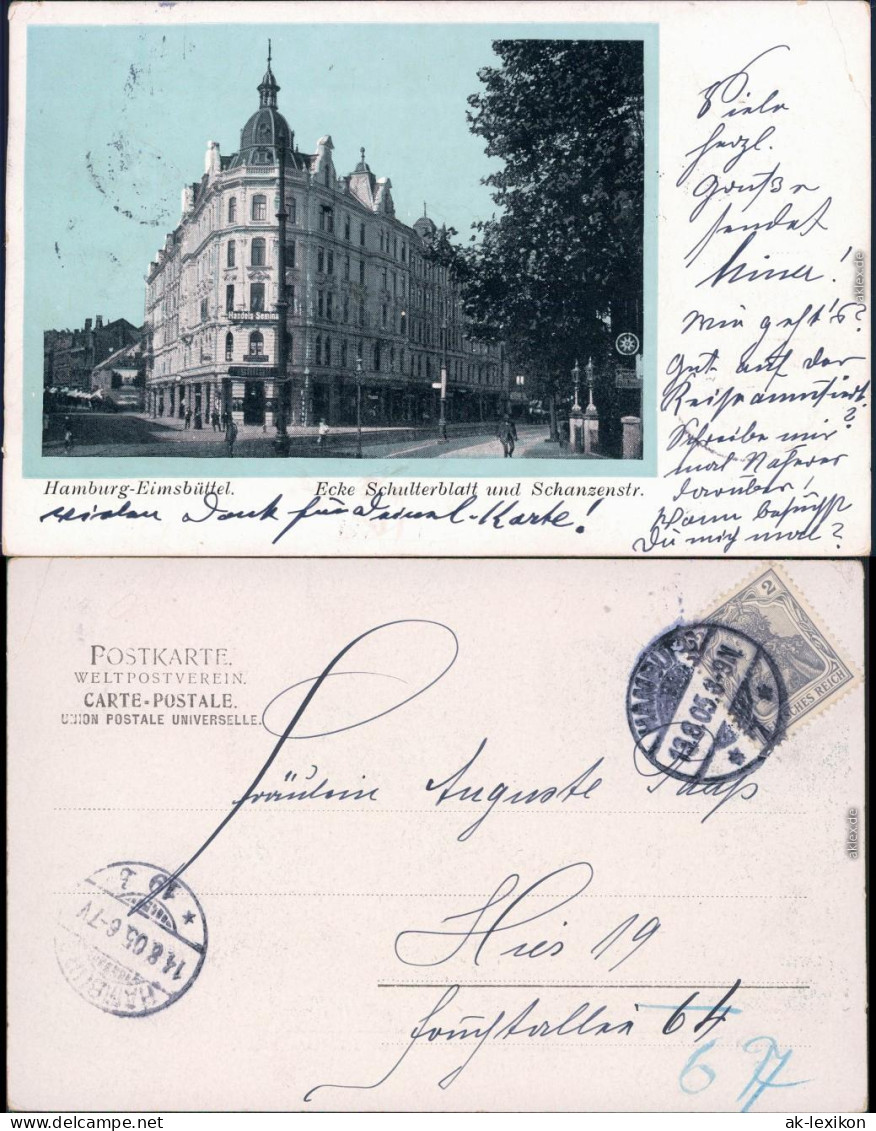 Viele
herzl.
Grüße
sendet
Mina!
Wie geht's?
Gut auf der
Reise amüsiert?
Schreibe mir
mal Näheres
darüber!
Wann besuchst
Du mich mal?
Handels Semina
Hamburg-Eimsbüttel.
Ecke Schulterblatt und Schanzenstr.
vielen Dank für Deine l. Karte!
aklex.de
POSTKARTE.
WELTPOSTVEREIN.
CARTE-POSTALE.
UNION POSTALE UNIVERSELLE.
2
DEUTSCHES REICH
HAMBURG
13.8.05. 8-9N.
Fräulein Auguste
Hier 19
64
67
HAMBURG
14.8.05. 6-7V
* 19
aklex.de
ak-lexikon